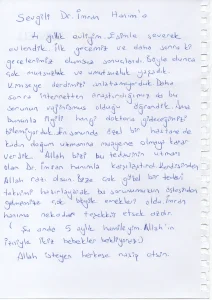 Sevgili Dr. İmran Hanım'a
4 yıllık evliyim. Eşimle severek
evlendik. İlk gecemiz ve daha sonraki
gecelerimiz olumsuz sonuçlandı. Böyle olunca
çok mutsuzluk ve umutsuzluk yaşadık.
Kimseye derdimizi anlatamıyorduk. Daha
sonra internetten araştırdığımızda bu
sorunun vajinismus olduğu öğrendik. Ama
bununla ilgili hangi doktora gideceğimizi
bilemiyorduk. En sonunda özel bir hastane de
kadın doğum uzmanına muayene olmaya karar
verdik. Allah bizi bu tedavinin uzmanı
olan Dr. İmran hanımla karşılaştırdı. Kendisinden
Allah razı olsun. Bize çok güzel bir tedavi
takvimi hazırlayarak bu sorunumuzun üstesinden
gelmemize çok büyük emekleri oldu. İmran
hanıma ne kadar teşekkür etsek azdır.
( Şu anda 5 aylık hamileyim. Allah'ın
izniyle ikiz bebekler bekliyoruz.)
Allah isteyen herkese nasip etsin.